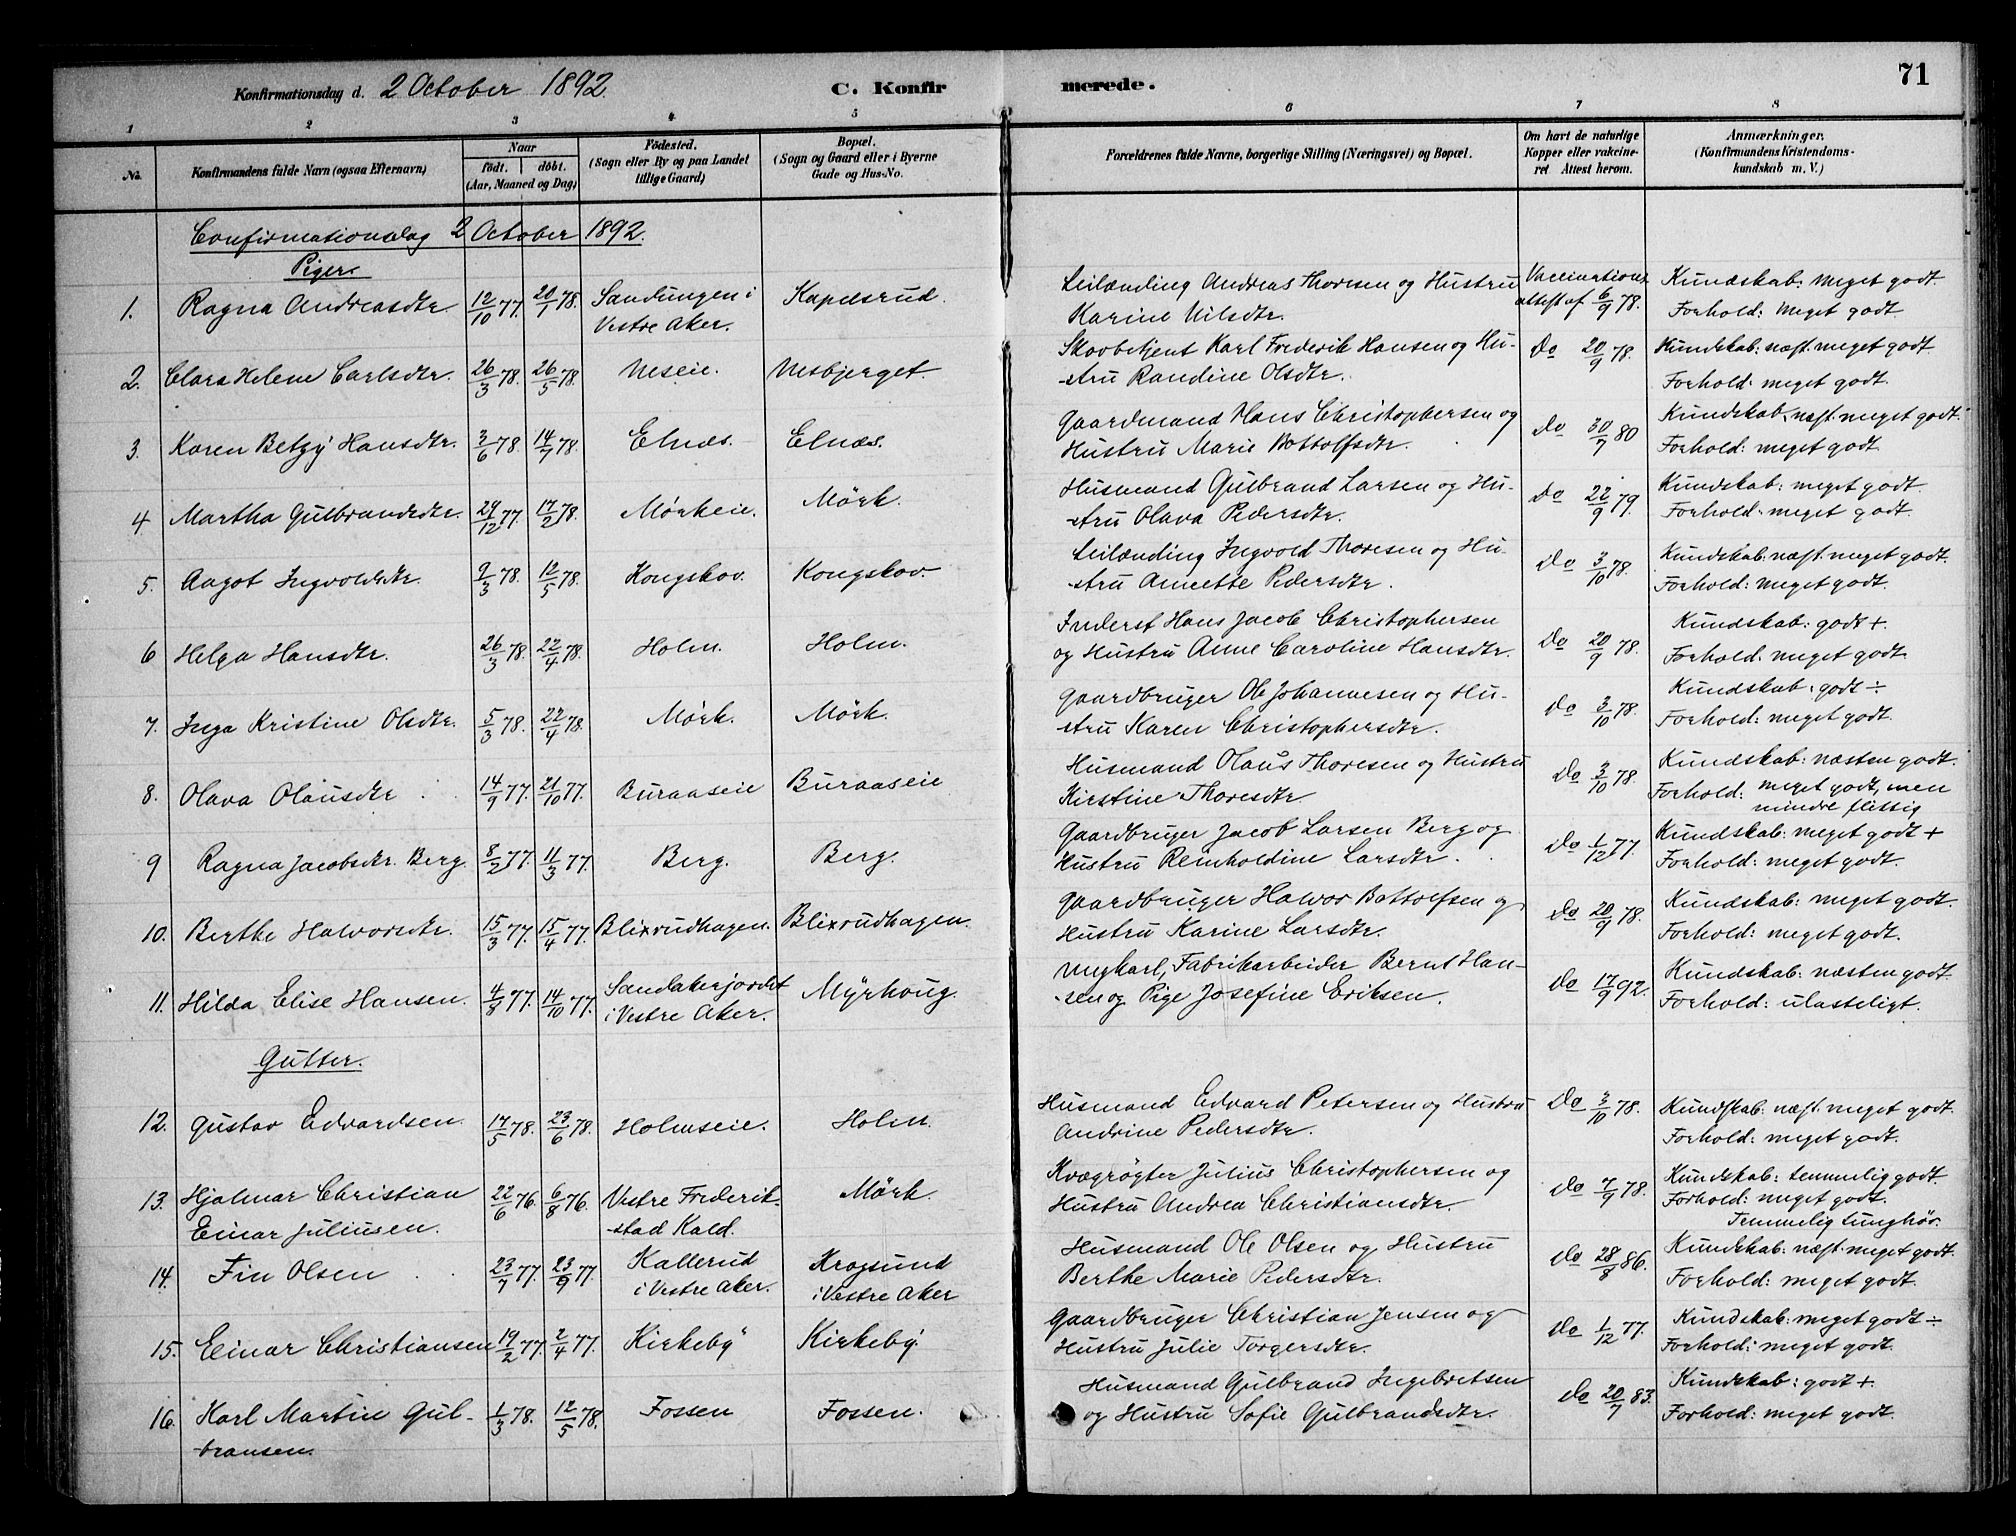 71
Konfirmationsdag d. 2 October 1892.
C. Konfirmerede.
1 2 3 4 5 6 7 8
No.
Konfirmandens fulde Navn (ogsaa Efternavn)
Naar
født. døbt.
(Aar, Maaned og Dag)
Fødested.
(Sogn eller By og paa Landet
tillige Gaard)
Bopæl.
(Sogn og Gaard eller i Byerne
Gade og Hus-No.
Forældrenes fulde Navne, borgerlige Stilling (Næringsvei) og Bopæl.
Om havt de naturlige
Kopper eller vakcine-
ret Attest herom.
Anmærkninger.
(Konfirmandens Kristendoms-
kundskab m. V.)
Confirmationsdag 2 October 1892.
Piger.
1. Ragna Andreasdtr. 12/10 77. 20/1 78. Sandungen i Kapelsrud.
Vestre Aker.
Leilænding Andreas Thoresen og Hustru
Karine Nilsdtr.
Vaccinations
attest af 6/9 78.
Kundskab: meget godt.
Forhold: meget godt.
2. Clara Helene Carlsdtr. 26/3 78. 26/5 78. Neseie. Nesbjerget.
Skovbetjent Karl Frederik Hansen og Hu-
stru Randine Olsdtr.
Do 20/9 78.
Kundskab: næst. meget godt
Forhold: meget godt.
3. Karen Betzy Hansdtr. 3/6 78. 14/7 78. Elnæs. Elnæs.
Gaardmand Hans Christophersen og
Hustru Marie Bottolfsdtr.
Do 30/7 80
Kundskab. næst. meget godt.
Forhold: meget godt.
4. Martha Gulbrandsdtr. 29/12 77. 17/2 78. Mørkeie. Mörk.
Husmand Gulbrand Larsen og Hu-
stru Olava Pedersdtr.
Do 22/9 79.
Kundskab: meget godt.
Forhold: meget godt.
5. Aagot Ingvoldsdtr. 9/3 78. 12/5 78. Kongskov. Kongskov.
Leilænding Ingvold Thoresen og Hu-
stru Annette Pedersdtr.
Do 3/10 78.
Kundskab: næst. meget godt.
Forhold: meget godt.
6 Helga Hansdtr. 26/3 78. 22/4 78. Holm. Holm.
Inderst Hans Jacob Christophersen
og Hustru Anne Caroline Hansdtr.
Do 20/9 78.
Kundskab: godt +.
Forhold: meget godt.
7. Inga Kristine Olsdtr. 5/3 78. 22/4 78. Mørk. Mörk.
Gaardbruger Ole Johannesen og Hu-
stru Karen Christophersdtr.
Do 3/10 78.
Kundskab: godt ÷
Forhold: meget godt.
8. Olava Olausdtr 14/9 77. 21/10 77. Buraaseie Buraaseie
Husmand Olaus Thoresen og Hustru
Kirstine Thoresdtr.
Do 3/10 78.
Kundskab: næsten godt.
Forhold: meget godt, men
mindre flittig
9 Ragna Jacobsdtr. Berg. 8/2 77. 11/3 77. Berg. Berg.
Gaardbruger Jacob Larsen Berg og
Hustru Reinholdine Larsdtr.
Do 1/12 77.
Kundskab: meget godt +
Forhold: meget godt.
10. Berthe Halvorsdtr. 15/3 77. 15/4 77. Blixrudhagen. Blixrudhagen.
Gaardbruger Halvor Bottolfsen og
Hustru Karine Larsdtr.
Do 20/9 78.
Kundskab: meget godt.
Forhold: meget godt.
11. Hilda Elise Hansen. 4/8 77. 14/10 77. Sandakerjordet Myrhoug.
i Vestre Aker.
Ungkarl, Fabrikarbeider Bernt Han-
sen og Pige Josefine Eriksen.
Do 17/9 92.
Kundskab: næsten godt
Forhold: ulasteligt.
Gutter.
12. Gustav Edvardsen. 17/5 78. 23/6 78. Holmseie. Holm.
Husmand Edvard Petersen og Hustru
Andrine Pedersdtr.
Do 3/10 78.
Kundskab: næst. meget godt.
Forhold: meget godt.
13. Hjalmar Christian 22/6 76. 6/8 76. Vestre Frederik- Mörk.
Einar Juliusen. stad Kald.
Kvægrøgter Julius Christophersen og
Hustru Andrea Christiansdtr.
Do 7/9 78.
Kundskab: temmelig godt.
Forhold: meget godt.
Temmelig tunghør.
14. Fin Olsen 23/7 77. 23/9 77. Kallerud Krogsund
i Vestre Aker. i Vestre Aker
Husmand Ole Olsen og Hustru
Berthe Marie Pedersdtr.
Do 28/8 86.
Kundskab: næst. meget godt.
Forhold: meget godt.
15. Einar Christiansen 19/2 77. 2/4 77. Kirkeby Kirkeby.
Gaardbruger Christian Jensen og
Hustru Julie Torgersdtr.
Do 1/12 77.
Kundskab: meget godt ÷
Forhold: meget godt.
16. Karl Martin Gul- 1/3 78. 12/5 78. Fossen Fossen.
bransen.
Husmand Gulbrand Ingebretsen
og Hustru Sofie Gulbrandsdtr.
Do 20/7 83.
Kundskab: godt +.
Forhold: meget godt.